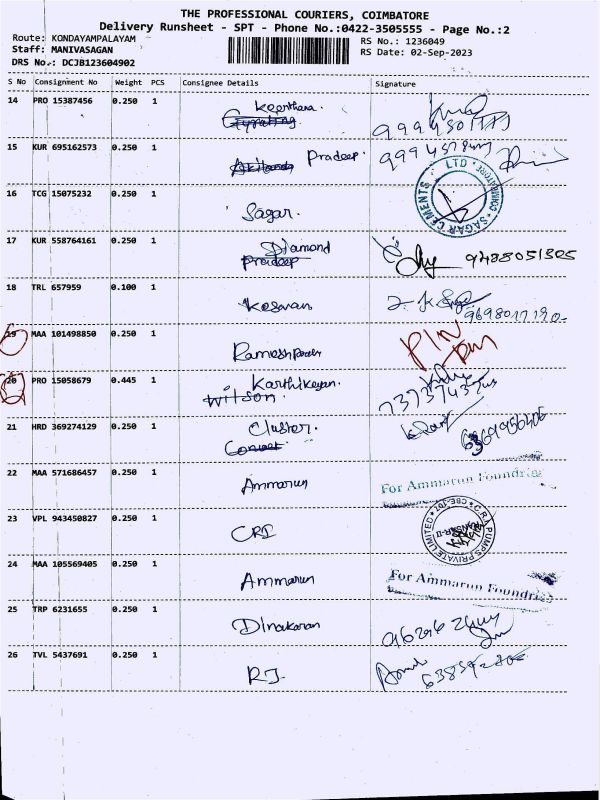 THE PROFESSIONAL COURIERS, COIMBATORE
Delivery Runsheet - SPT - Phone No.:0422-3505555 - Page No.:2
Route: KONDAYAMPALAYAM
RS No.: 1236049
Staff: MANIVASAGAN
RS Date: 02-Sep-2023
DRS No.: DCJB123604902
S No Consignment No Weight PCS Consignee Details Signature
14 PRO 15387456 0.250 1 Keerthana.
15 KUR 695162573 0.250 1 Pradeep.
16 TCG 15075232 0.250 1 Sagar. SAGAR CEMENTS LTD. COIMBATORE
17 KUR 558764161 0.250 1 Diamond 9488051305
Pradeep
18 TRL 657959 0.100 1 Kesavan
19 MAA 101498850 0.250 1
20 PRO 15058679 0.445 1 Karthikeyan.
Wilson.
21 HRD 369274129 0.250 1 Cluster.
22 MAA 571686457 0.250 1 Ammarun For Ammarun Foundries
23 VPL 943450827 0.250 1 CRI
24 MAA 105569405 0.250 1 Ammarun For Ammarun Foundries
25 TRP 6231655 0.250 1 Dinakaran
26 TVL 5437691 0.250 1 RJ.